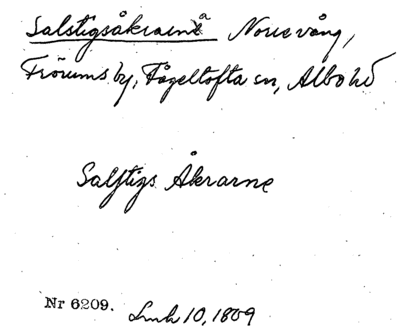 Salstigsåkrarna å Norrevång,
Frörums by, Fågeltofta sn, Albo hd
Salstigs Åkrarne
Nr 6209. Lmh 10, 1809